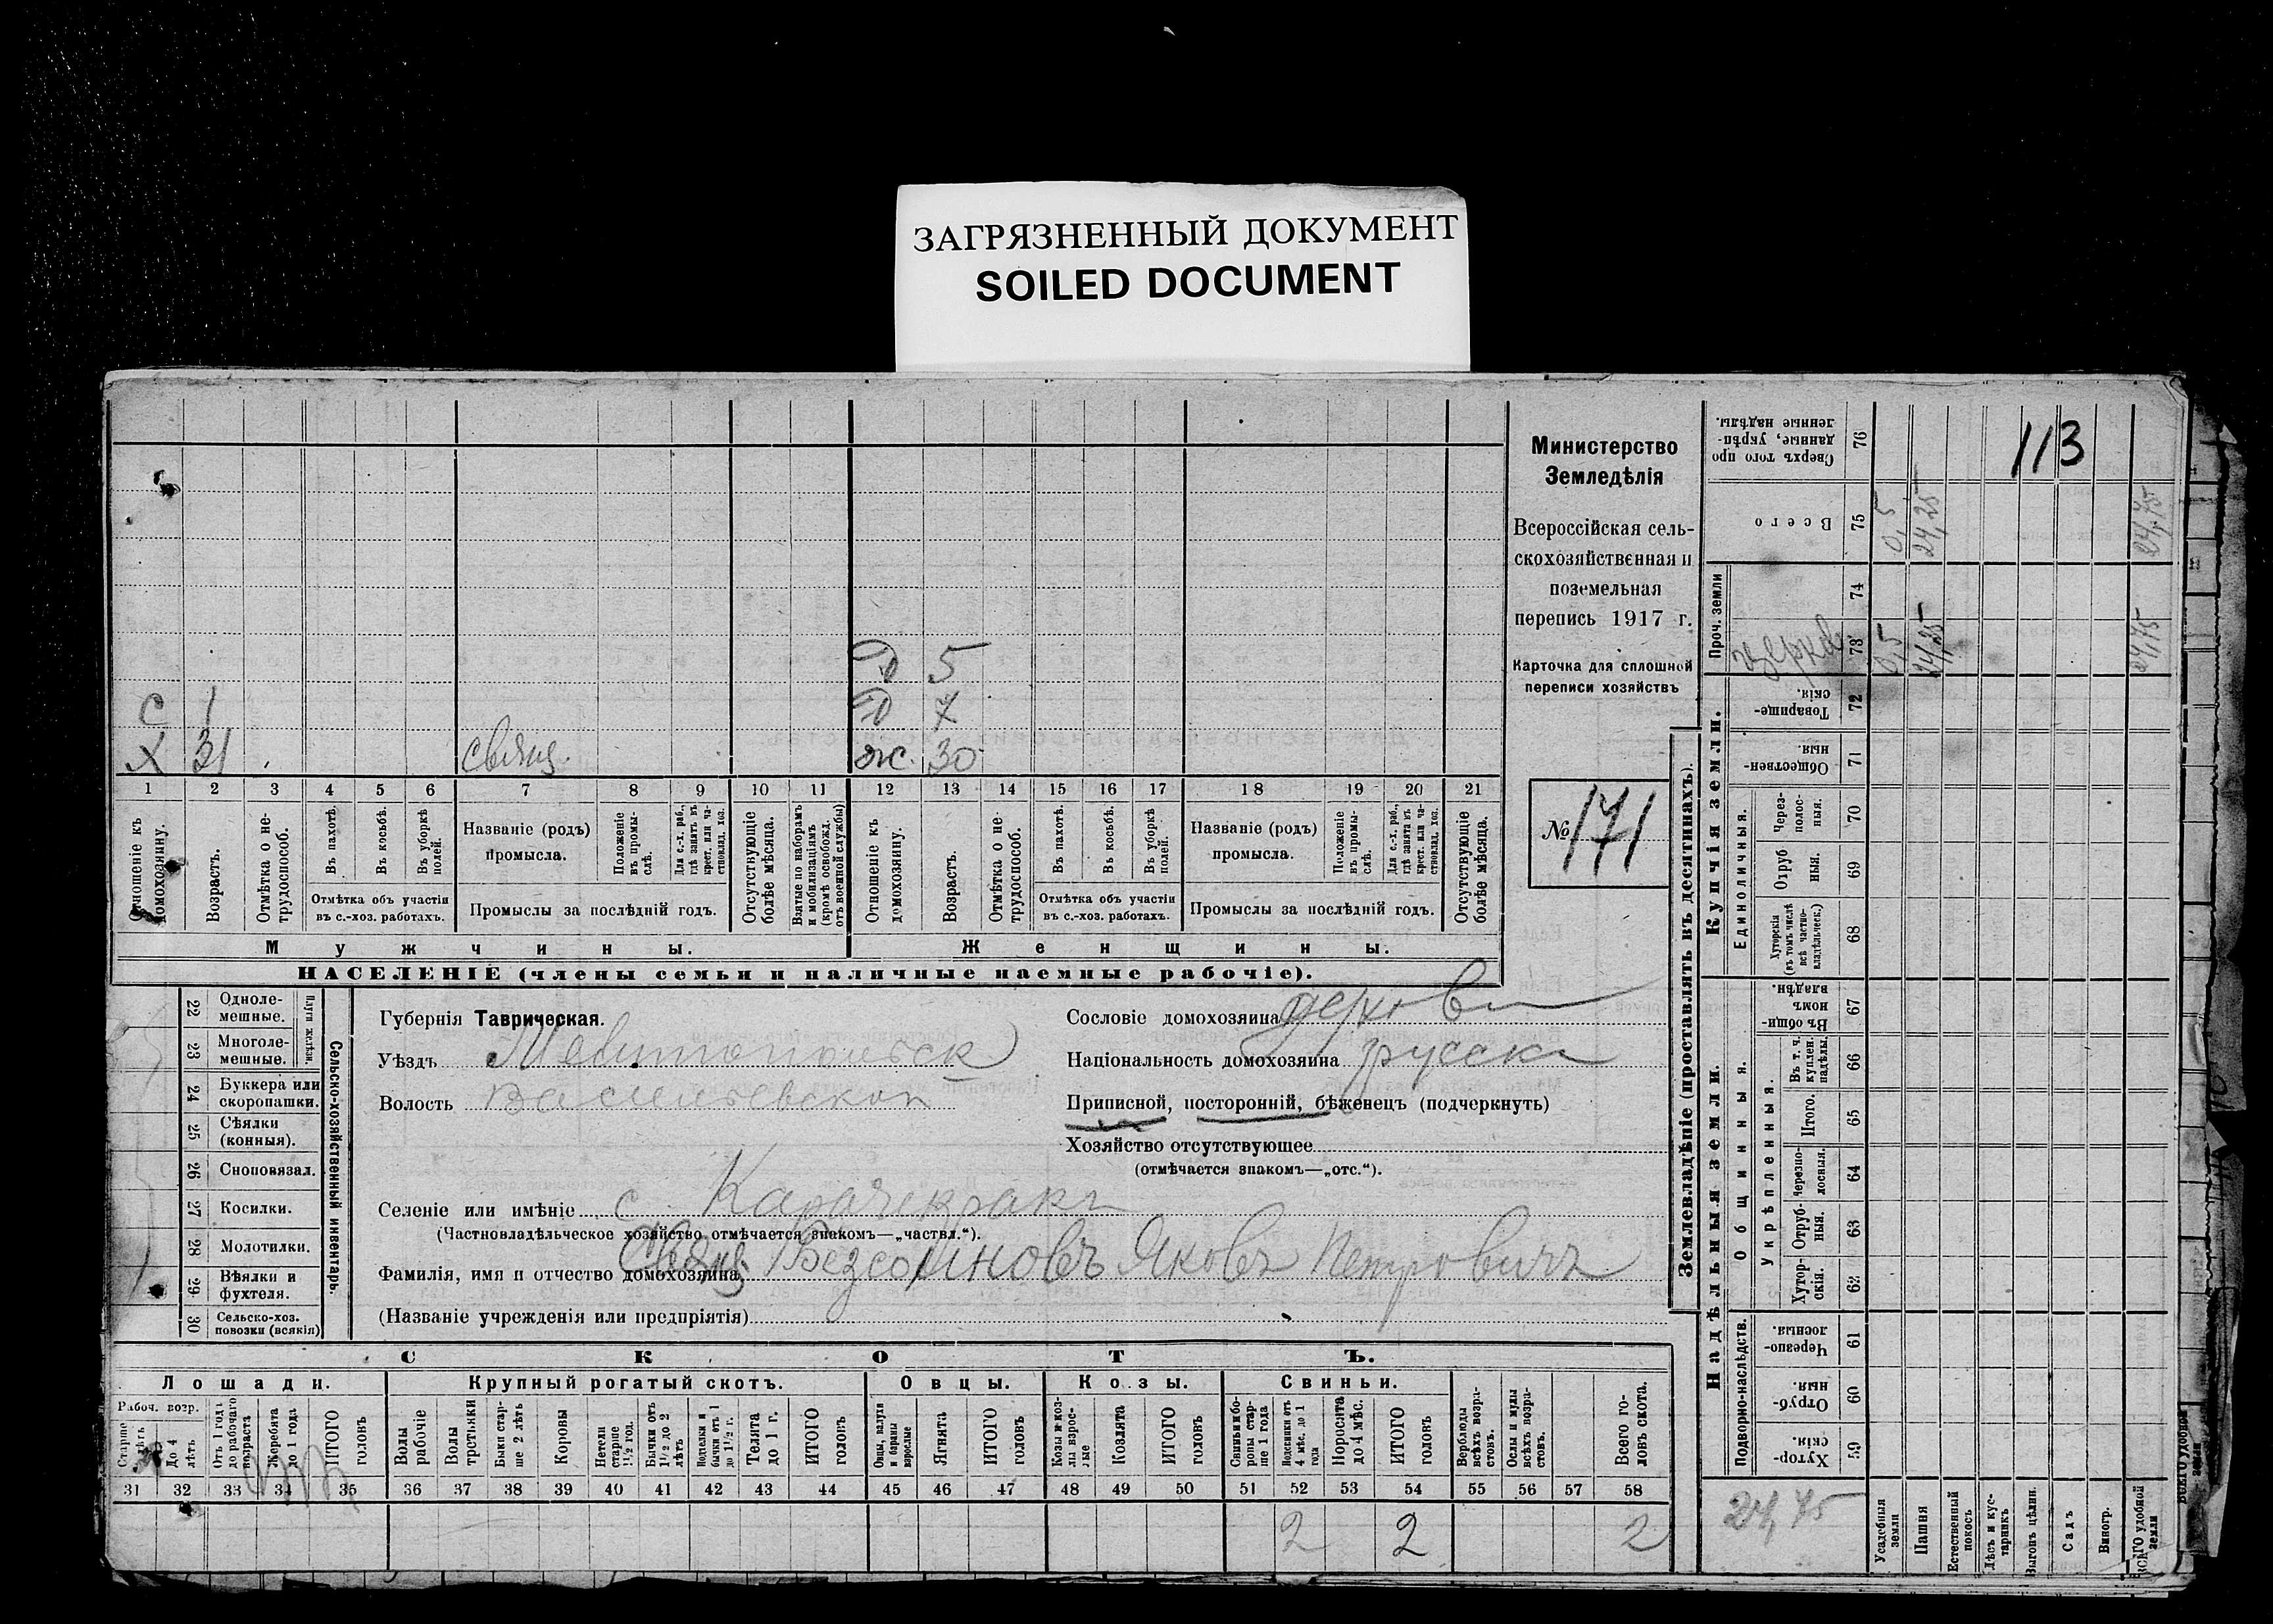 ЗАГРЯЗНЕННЫЙ ДОКУМЕНТ
SOILED DOCUMENT
113
Министерство
Земледѣлія
Всероссійская сель-
скохозяйственная и
поземельная
перепись 1917 г.
Карточка для сплошной
переписи хозяйствъ
№ 171
Д 5
С 1 Д 7
Х 31 свящ. ж. 30
1 2 3 4 5 6 7 8 9 10 11 12 13 14 15 16 17 18 19 20 21
Отношеніе къ домохозяину.
Возрастъ.
Отмѣтка о не-трудоспособ.
Въ пахотѣ.
Въ косьбѣ.
Въ уборкѣ полей.
Отмѣтка объ участіи
въ с.-хоз. работахъ.
Названіе (родъ)
промысла.
Положеніе въ промы-слѣ.
Для с.-х. раб., гдѣ занятъ въ крест. или ча-стновлад. хоз.
Промыслы за послѣдній годъ.
Отсутствующіе болѣе мѣсяца.
Взятые по наборамъ и мобилизаціямъ (кромѣ освобожд. отъ военной службы)
Отношеніе къ домохозяину.
Возрастъ.
Отмѣтка о не-трудоспособ.
Въ пахотѣ.
Въ косьбѣ.
Въ уборкѣ полей.
Отмѣтка объ участіи
въ с.-хоз. работахъ.
Названіе (родъ)
промысла.
Положеніе въ промы-слѣ.
Для с.-х. раб., гдѣ занята въ крест. или ча-стновлад. хоз.
Промыслы за послѣдній годъ.
Отсутствующіе болѣе мѣсяца.
Мужчины. Женщины.
НАСЕЛЕНІЕ (члены семьи и наличные наемные рабочіе).
22 Одноле-мешные.
23 Многоле-мешные.
24 Буккера или скоропашки.
25 Сѣялки (конныя).
26 Сноповязал.
27 Косилки.
28 Молотилки.
29 Вѣялки и фухтеля.
30 Сельско-хоз. повозки (всякія)
Сельско-хозяйственный инвентарь.
Губернія Таврическая.
Уѣздъ Мелитопольск
Волость Васильевской
Селеніе или имѣніе с. Карачекракъ
(Частновладѣльческое хозяйство отмѣчается знакомъ—„частвл.“).
Фамилія, имя и отчество домохозяина Свящ. Безсоновъ Яковъ Петровичъ
(Названіе учрежденія или предпріятія)
Сословіе домохозяина духовн
Національность домохозяина русск
Приписной, посторонній, бѣженецъ (подчеркнуть)
Хозяйство отсутствующее
(отмѣчается знакомъ—„отс.“).
СКОТЪ.
Лошади. Крупный рогатый скотъ. Овцы. Козы. Свиньи.
Рабоч. возр.
Старше 4 лѣтъ
До 4 лѣтъ
Отъ 1 года до рабочаго возраста
Жеребята до 1 года
ИТОГО головъ
Волы рабочіе
Волы третьяки
Быки стар-ше 2 лѣтъ
Коровы
Нетели старше 1½ год.
Бычки отъ 1½ до 2 лѣтъ
Телята до 1 г.
ИТОГО головъ
Ягнята
ИТОГО головъ
Козлята
ИТОГО головъ
Поросята до 4 мѣс.
ИТОГО головъ
Верблюды всѣхъ возра-стовъ.
Ослы и мулы всѣхъ возра-стовъ.
Всего го-ловъ скота.
31 32 33 34 35 36 37 38 39 40 41 42 43 44 45 46 47 48 49 50 51 52 53 54 55 56 57 58
2 2 2
Землевладѣніе (проставлять въ десятинахъ).
Надѣльныя земли. Купчія земли.
Подворно-наслѣдств.
Общинныя.
Укрѣпленныя.
Единоличныя.
Проч. земли
Сверхъ того про данные, укрѣп-ленные надѣлы. 76
Всего 75 0,5 24,25 24,75
74
церков 73 0,5 24,25 24,75
Товарище-скія. 72
Обществен-ныя. 71
Через-полос-ныя. 70
Отруб ныя. 69
Хуторскія (въ томъ числѣ всѣ частно-владѣльческ.) 68
Въ общи-номъ владѣн. 67
Въ т. ч. куплен. надѣлы. 66
Итого. 65
Черезпо-лосныя. 64
Отруб-ныя. 63
Хутор-скія. 62
Черезпо-лосныя 61
Отруб-ныя 60
Хутор-скія 59
24,75
Усадебныя земли
Пашня
Естественный покосъ
Лѣсъ и кус-тарникъ
Выгонъ цѣлин.
Садъ
Виногр.
ВСЕГО удобной земли